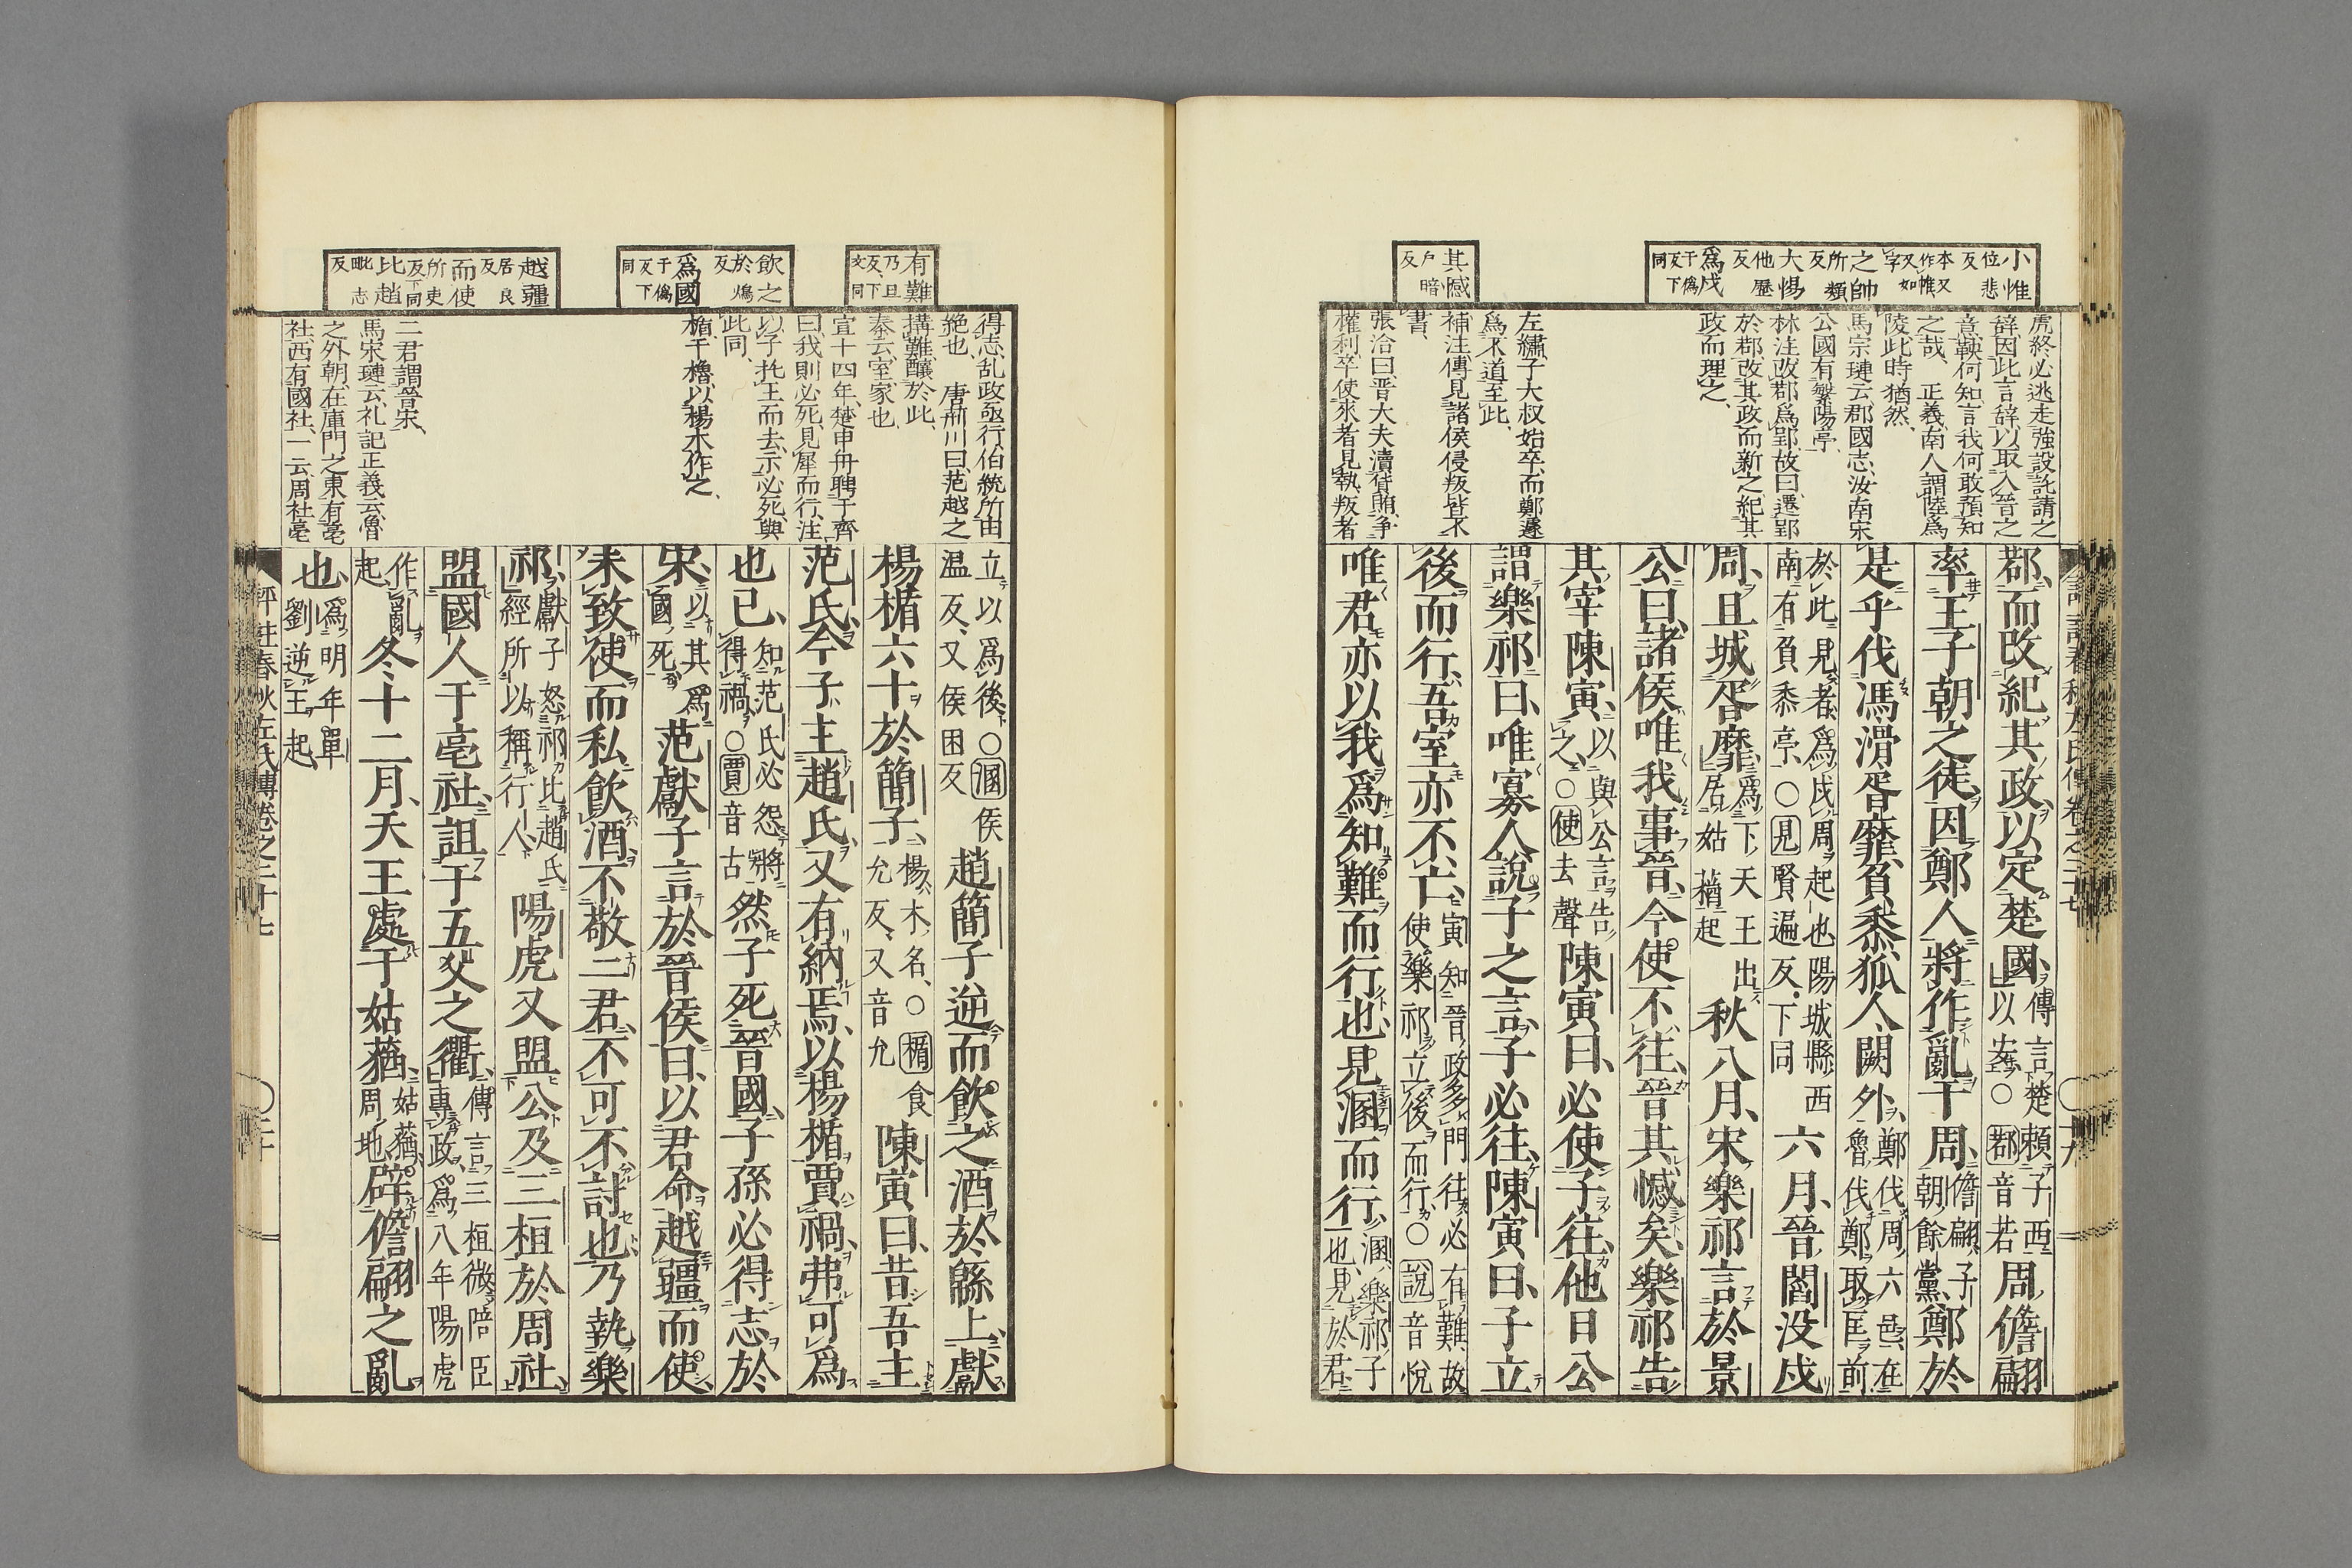 小惟
位悲
反
本又
作帷
又如
字
之帥
所類
反
大惕
他歷
反
爲戍
于僞
反下
同
其憾
戶暗
反
虎終必逃走強設託請之
辭因此言辭以取入晉之
意鞅何知言我何敢預知
之哉 正義南人謂陸爲
陵此時猶然
馬宗璉云郡國志汝南宋
公國有繁陽亭
林注改鄀爲郢故曰遷郢
於鄀改其政而新之紀其
政而理之
左繡子大叔始卒而鄭遂
爲不道至此
補注傳見諸侯侵叛皆不
書
張洽曰晉大夫瀆貨賄爭
權利卒使來者見執叛者
鄀而改紀其政以定楚國傳言楚賴子西以安○鄀音若周儋翩
率王子朝之徒因鄭人將作亂于周儋翩子朝餘黨鄭於
是乎伐馮滑胥靡負黍狐人闕外鄭伐周六邑在魯伐鄭取匡前
於此見者爲戍周起也陽城縣西南有負黍亭○見賢遍反下同六月晉閻沒戍
周且城胥靡爲下天王出居姑蕕起秋八月宋樂祁言於景
公曰諸侯唯我事晉今使不往晉其憾矣樂祁告
其宰陳寅以與公言告之○使去聲陳寅曰必使子往他日公
謂樂祁曰唯寡人說子之言子必往陳寅曰子立
後而行吾室亦不亡寅知晉政多門往必有難故使樂祁立後而行○說音悅
唯君亦以我爲知難而行也見溷而行溷樂祁子也見於君
有難
乃旦
反下
文同
飲之
於鴆
反
爲國
于僞
反下
同
越疆
居良
反
而使
所吏
反下同
比趙
毗志
反
得志乱政亟行伯統所由
絕也 唐荊川曰范越之
搆難釀於此
秦云室家也
宣十四年楚申舟聘于齊
曰我則必死見犀而行注
以子托王而去示必死與
此同
楯干櫓以楊木作之
二君謂晉宋
馬宋璉云礼記正義云魯
之外朝在庫門之東有亳
社西有國社一云周社亳
立以爲後○溷侯温反又侯困反趙簡子逆而飲之酒於緜上獻
楊楯六十於簡子楊木名○楯食允反又音允陳寅曰昔吾主
范氏今子主趙氏又有納焉以楊楯賈禍弗可爲
也已知范氏必怨將得禍○賈音古然子死晉國子孫必得志於
宋以其爲國死范獻子言於晉侯曰以君命越疆而使
未致使而私飲酒不敬二君不可不討也乃執樂
祁獻子怒祁比趙氏經所以稱行人陽虎又盟公及三桓於周社
盟國人于亳社詛于五父之衢傳言三桓微陪臣專政爲八年陽虎
作亂起冬十二月天王處于姑蕕姑蕕周地辟儋翩之亂
也爲明年單劉逆王起
評註春秋左氏傳卷之二十七